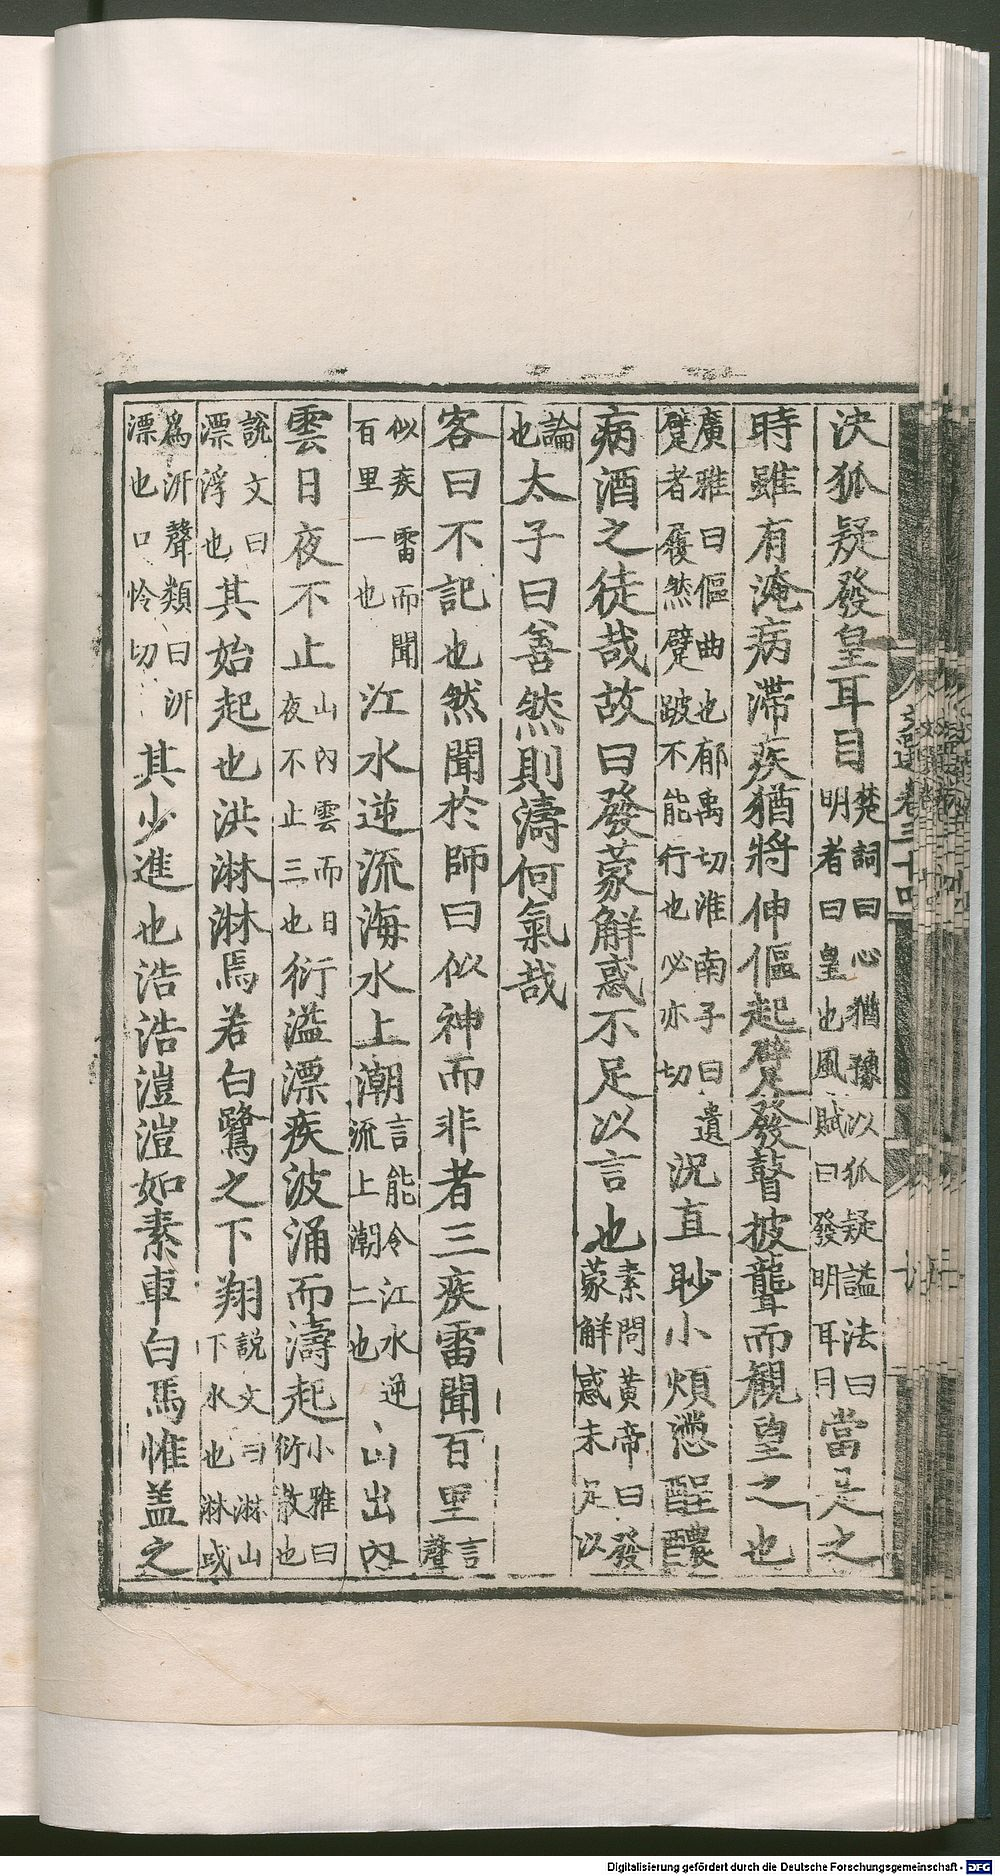 決狐疑發皇耳目楚詞曰心猶豫以狐疑謚法曰明者曰皇也風賦曰發明耳目當是之
時雖有淹病滯疾猶將伸傴起躄發瞽披聾而觀皇之也
廣雅曰傴曲也郁禹切淮南子曰遺躄者屨然躄跛不能行也必亦切況直眇小煩懣酲醲
病酒之徒哉故曰發蒙解惑不足以言也素問黃帝曰發蒙解惑未足以
論也太子曰善然則濤何氣哉
客曰不記也然聞於師曰似神而非者三疾雷聞百里言聲
似疾雷而聞百里一也江水逆流海水上潮言能令江水逆流上潮二也山出內
雲日夜不止山內雲而日夜不止三也衍溢漂疾波涌而濤起小雅曰衍散也
說文曰漂浮也其始起也洪淋淋焉若白鷺之下翔說文曰淋山下水也淋或
為沂聲類曰沂漂也口怜切其少進也浩浩溰溰如素車白馬惟蓋之
卷三十四
Digitalisierung gefördert durch die Deutsche Forschungsgemeinschaft - DFG